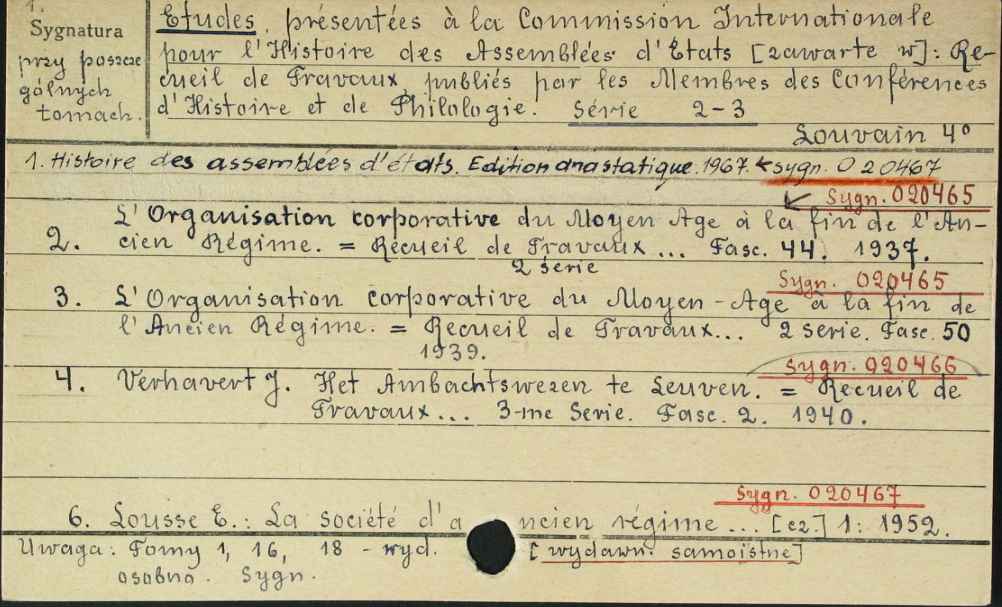 1.
Sygnatura
przy poszcze
gólnych
tomach.
Etudes présentées à la Commission Internationale
pour l'Histoire des Assemblées d'Etats [zawarte w]: Re-
cueil de Travaux publiés par les Membres des Conférences
d'Histoire et de Philologie. Série 2-3
Louvain 4°
1. Histoire des assemblées d'états. Edition anastatique. 1967. ← sygn. 020467
Sygn. 020465
L'Organisation corporative du Moyen Age à la fin de l'An-
2. cien Régime. = Recueil de Travaux... Fasc. 44. 1937.
2 serie
Sygn. 020465
3. L'Organisation corporative du Moyen-Age à la fin de
l'Ancien Régime. = Recueil de Travaux... 2 serie. Fasc. 50
1939.
Sygn. 020466
4. Verhavert J. Het Ambachtswezen te Leuven. = Recueil de
Travaux... 3-me Serie. Fasc. 2. 1940.
Sygn. 020467
6. Lousse E.: La société d'ancien régime ... [cz] 1: 1952.
Uwaga: Tomy 1, 16, 18 - wyd. [wydawn. samoistne]
osobno. Sygn.